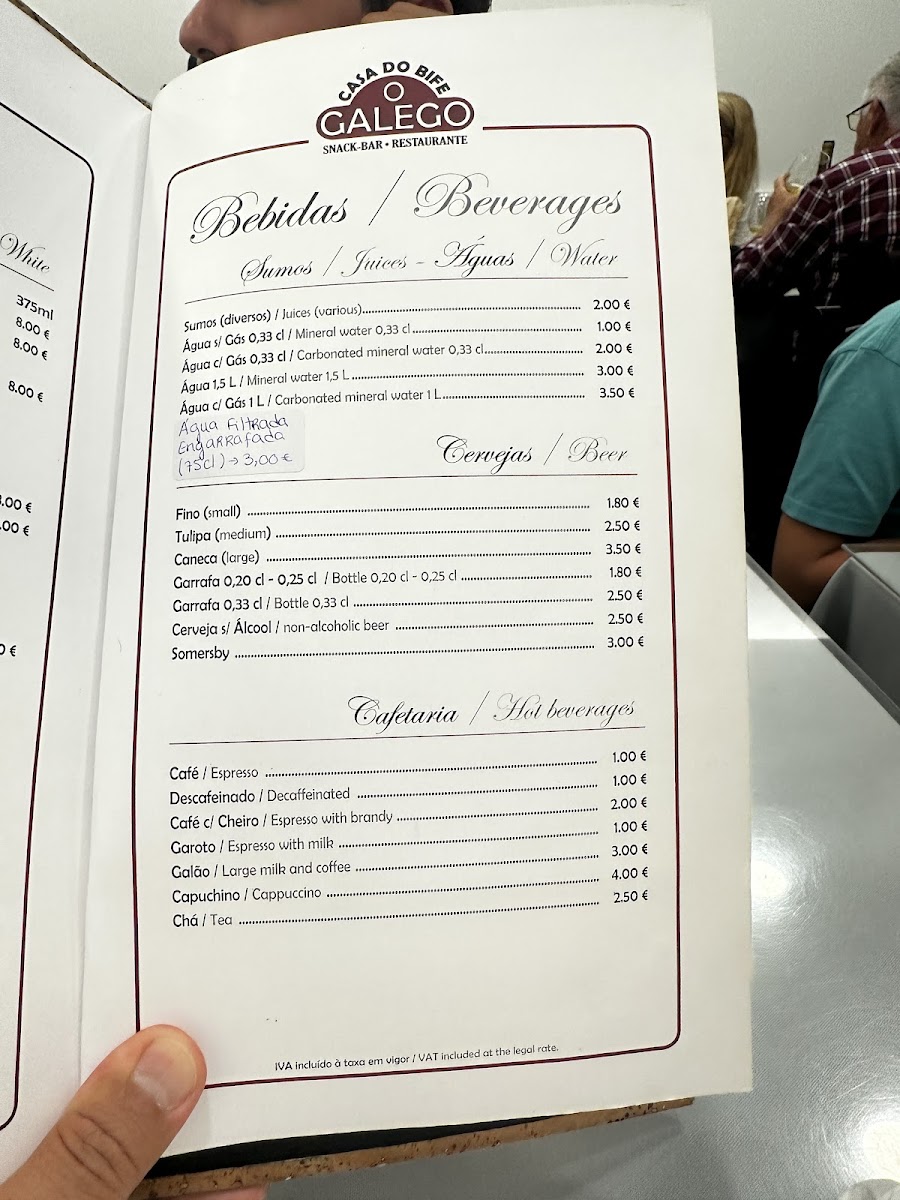 White
375ml
8.00 €
8.00 €
8.00 €
.00 €
.00 €
0 €
CASA DO BIFE
O
GALEGO
SNACK-BAR • RESTAURANTE
Bebidas / Beverages
Sumos / Juices - Águas / Water
Sumos (diversos) / Juices (various) 2.00 €
Água s/ Gás 0,33 cl / Mineral water 0,33 cl 1.00 €
Água c/ Gás 0,33 cl / Carbonated mineral water 0,33 cl 2.00 €
Água 1,5 L / Mineral water 1,5 L 3.00 €
Água c/ Gás 1 L / Carbonated mineral water 1 L 3.50 €
Água Filtrada
Engarrafada
(75cl) → 3,00 €
Cervejas / Beer
Fino (small) 1.80 €
Tulipa (medium) 2.50 €
Caneca (large) 3.50 €
Garrafa 0,20 cl - 0,25 cl / Bottle 0,20 cl - 0,25 cl 1.80 €
Garrafa 0,33 cl / Bottle 0,33 cl 2.50 €
Cerveja s/ Álcool / non-alcoholic beer 2.50 €
Somersby 3.00 €
Cafetaria / Hot beverages
Café / Espresso 1.00 €
Descafeinado / Decaffeinated 1.00 €
Café c/ Cheiro / Espresso with brandy 2.00 €
Garoto / Espresso with milk 1.00 €
Galão / Large milk and coffee 3.00 €
Capuchino / Cappuccino 4.00 €
Chá / Tea 2.50 €
IVA incluído à taxa em vigor / VAT included at the legal rate.